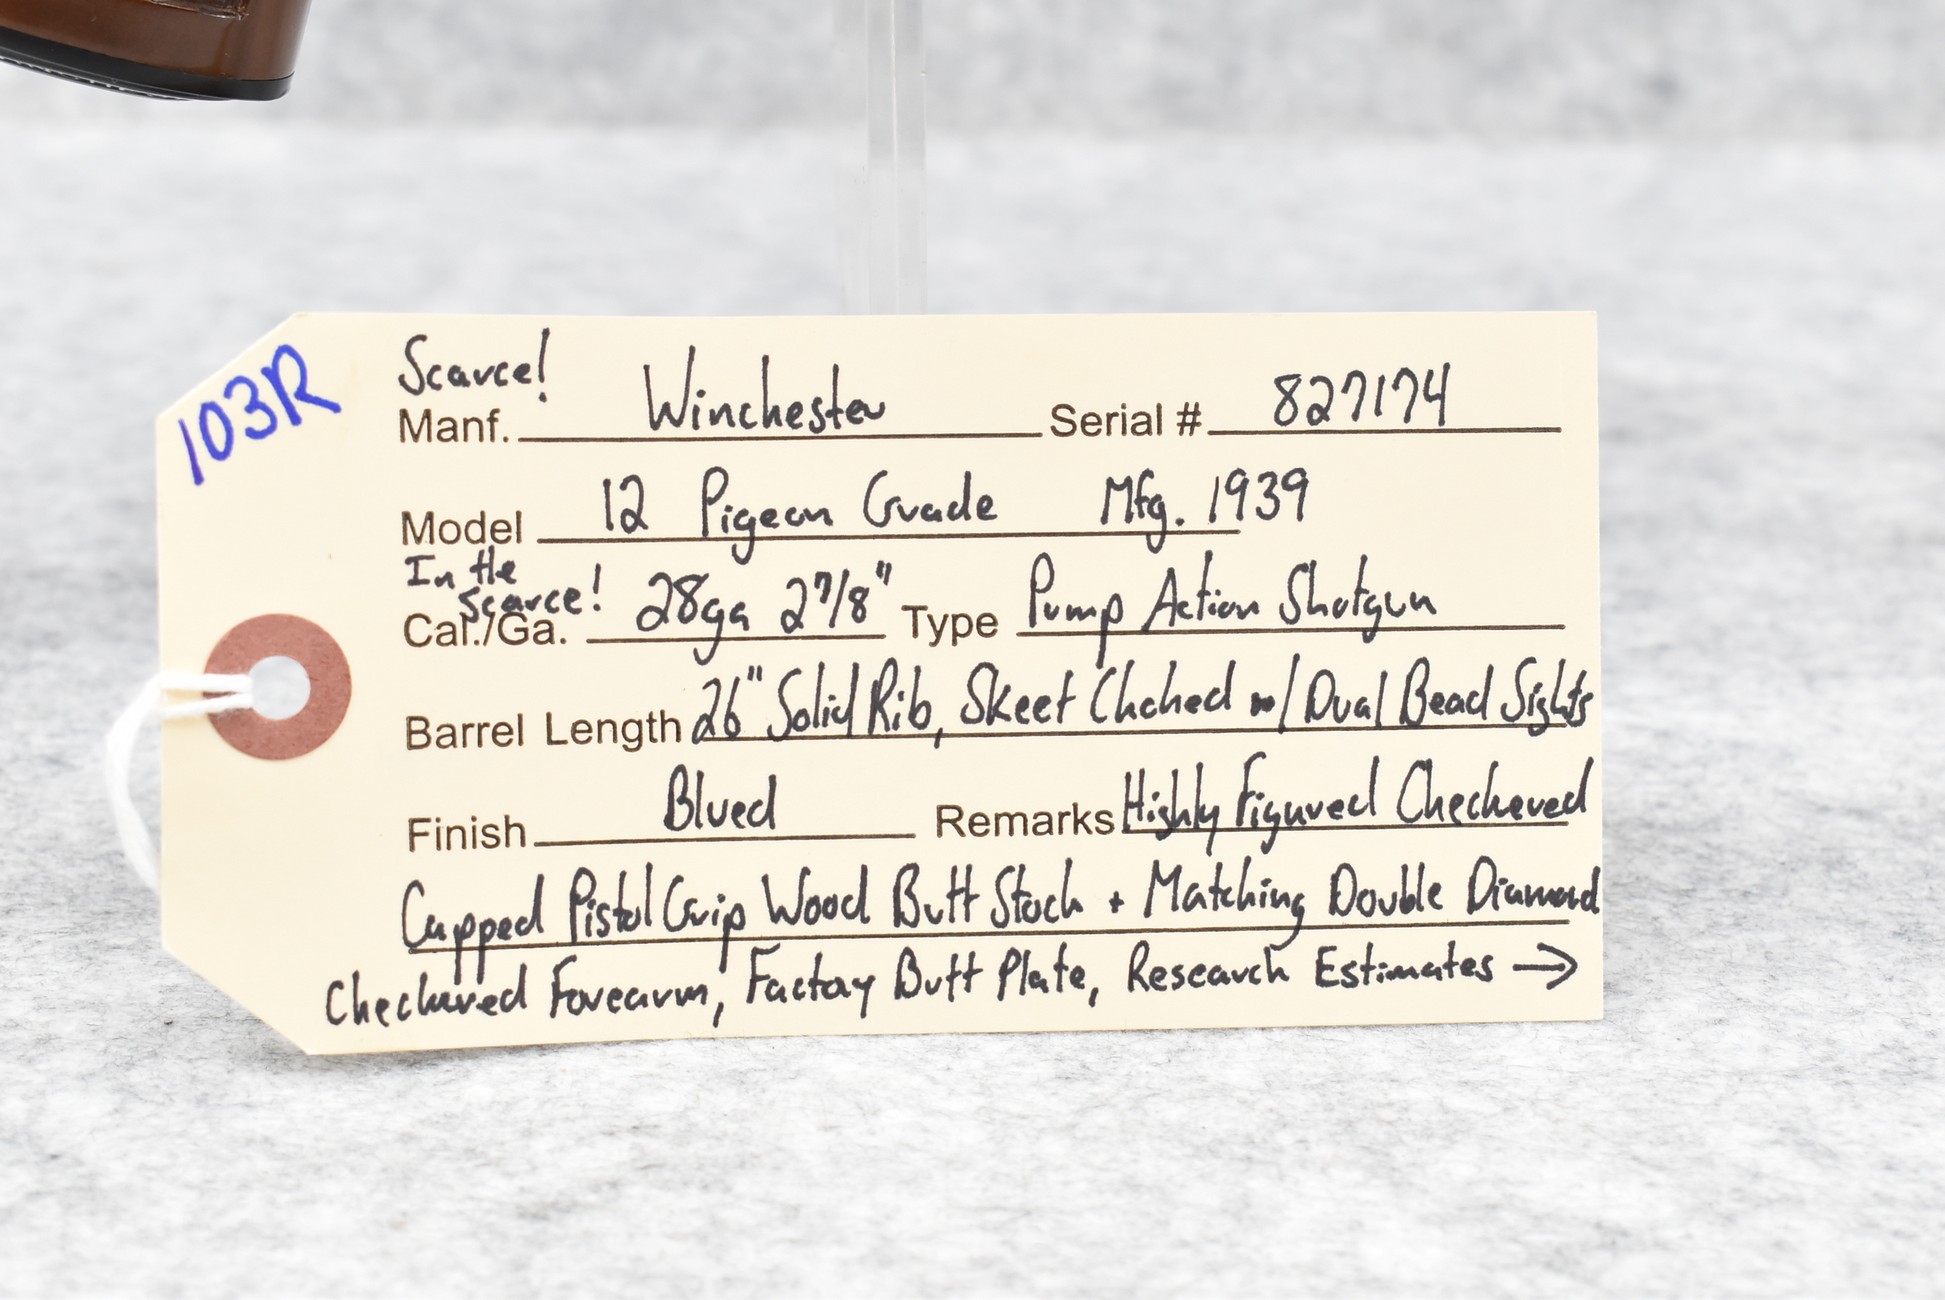 103R
Scarce!
Manf. Winchester Serial # 827174
Model 12 Pigeon Grade Mfg. 1939
In the
Scarce!
Cal./Ga. 28ga 2 7/8" Type Pump Action Shotgun
Barrel Length 26" Solid Rib, Skeet Choked w/ Dual Bead Sights
Finish Blued Remarks Highly Figured Checkered
Capped Pistol Grip Wood Butt Stock + Matching Double Diamond
Checkered Forearm, Factory Butt Plate, Research Estimates →